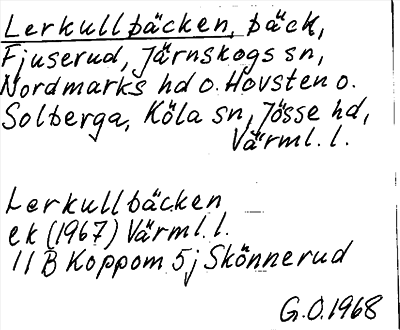 Lerkullbäcken, bäck,
Fjuserud, Järnskogs sn,
Nordmarks hd o. Hovsten o.
Solberga, Köla sn, Jösse hd,
Värml. l.
Lerkullbäcken
ek (1967) Värml. l.
11 B Koppom 5j Skönnerud
G.O. 1968